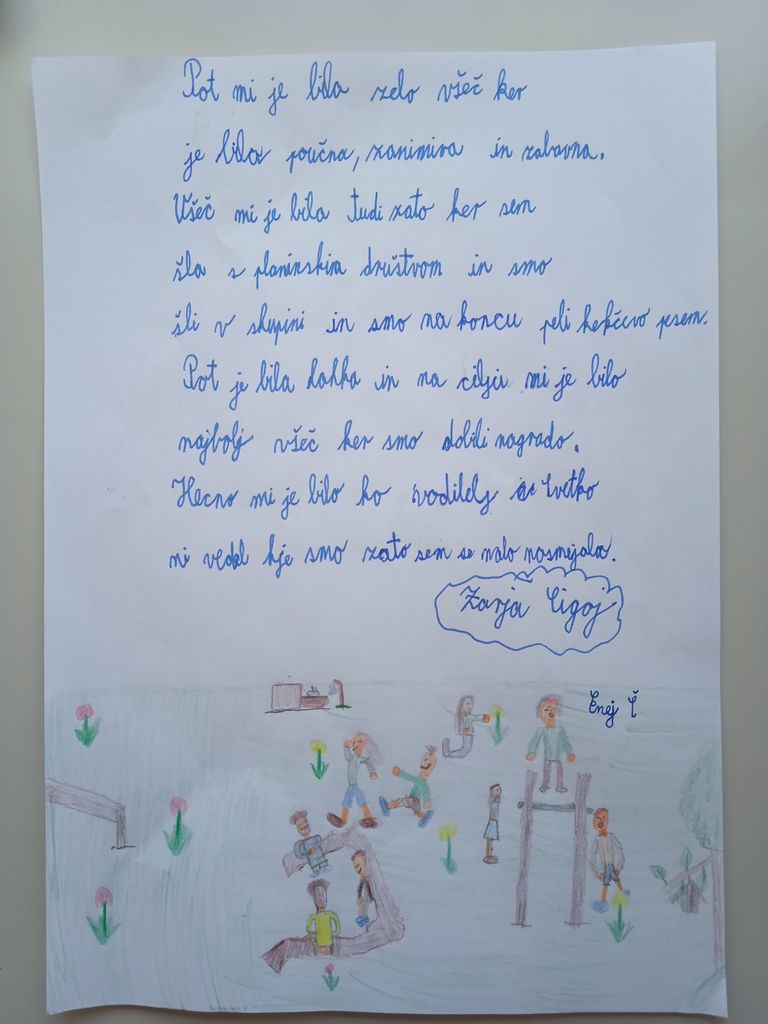 Pot mi je bila zelo všeč ker
je bila poučna, zanimiva in zabavna.
Všeč mi je bila tudi zato ker sem
šla s planinskim društvom in smo
šli v skupini in smo na koncu peli kekčevo pesem.
Pot je bila lahka in na cilju mi je bilo
najbolj všeč ker smo dobili nagrado.
mi je bilo ko Cvetko
ni vedel kje smo zato sem se malo nasmejala.
Zarja Čigoj
Enej Č